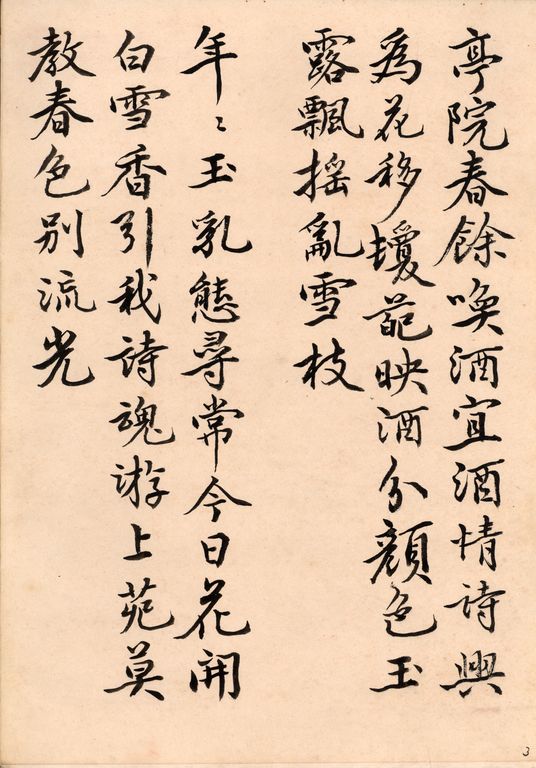 亭院春餘喚酒宜酒情詩興
為花移瓊葩映酒分顏色玉
露飄搖亂雪枝
年〻玉乳態尋常今日花開
白雪香引我詩魂游上苑莫
教春色別流光
3